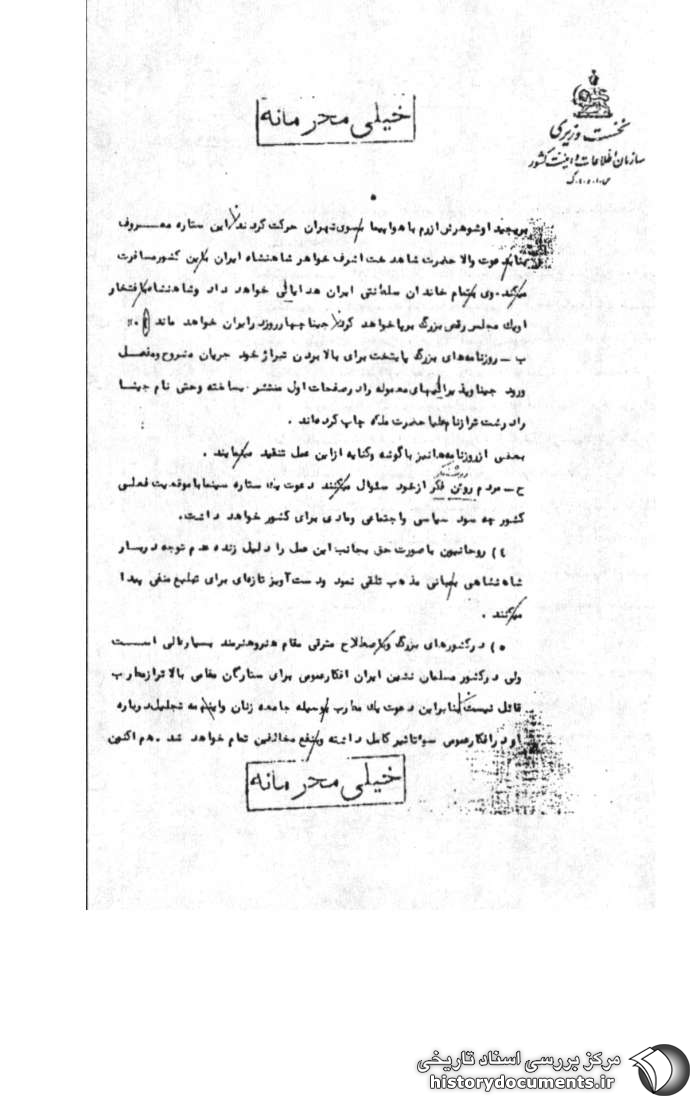 خیلی محرمانه
نخست وزیری
سازمان اطلاعات و امنیت کشور
س.ا.و.ا.ک
اوشوهرش ازرم با هواپیما بسوی تهران حرکت کردند این ستاره معروف
بنا بدعوت والا حضرت شاهدخت اشرف خواهر شاهنشاه ایران باین کشور مسافرت
میکند. وی بتمام خاندان سلطنتی ایران هدایائی خواهد داد و شاهنشاه بافتخار
او یک مجلس رقص بزرگ برپا خواهد کرد جینا چهار روز در ایران خواهد ماند
ب - روزنامه های بزرگ پایتخت برای بالا بردن تیراژ خود جریان مشروح و مفصل
ورود جینا و پذیرائیهای معموله را در صفحات اول منتشر ساخته و حتی نام جینا
را درشت تر از نام علیا حضرت ملکه چاپ کرده اند .
بعضی از روزنامه ها نیز با گوشه و کنایه از این عمل تنقید مینمایند .
ج - مردم روشن فکر از خود سئوال میکنند دعوت یک ستاره سینما با موقعیت فعلی
کشور چه سود سیاسی و اجتماعی و مادی برای کشور خواهد داشت.
۴) روحانیون با صورت حق بجانب این عمل را دلیل زنده عدم توجه دربار
شاهنشاهی بمبانی مذهب تلقی نمود و دست آویز تازه ای برای تبلیغ منفی پیدا
میکنند .
۵) در کشورهای بزرگ و باصطلاح مترقی مقام هنر و هنرمند بسیار عالی است
ولی در کشور مسلمان نشین ایران افکار عمومی برای ستارگان مقامی بالاتر از مطرب
قائل نیست بنابراین دعوت یک مطرب بوسیله جامعه زنان و اینهمه تجلیل درباره
او در افکار عمومی سوء تاثیر کامل داشته و بنفع مخالفین تمام خواهد شد . هم اکنون
خیلی محرمانه
مرکز بررسی اسناد تاریخی
historydocuments.ir